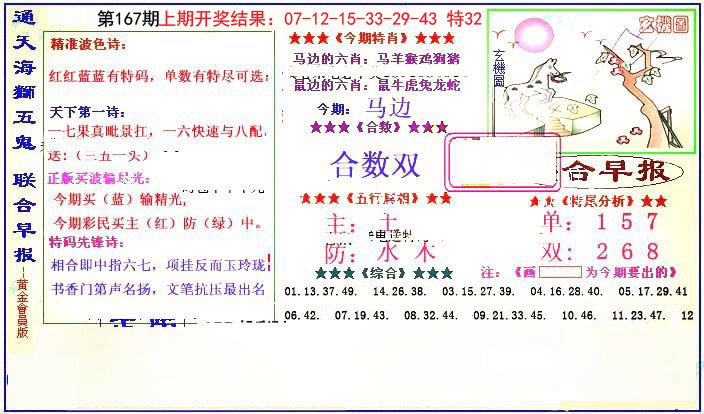 通天海狮五鬼 联合早报
--黄金會員版
第167期上期开奖结果：07-12-15-33-29-43 特32
精准波色诗：
红红蓝蓝有特码，单数有特尽可选；
天下第一诗：
一七果真毗景扛，一六快速与八配，
送:（三五一头）
正版买波输尽光：
今期买（蓝）输精光，
今期彩民买主（红）防（绿）中。
特码先锋诗：
相合即中指六七，项挂反而玉玲珑
书香门第声名扬，文笔抗压最出名
★★★《今期特肖》★★★
马边的六肖：马羊猴鸡狗猪
鼠边的六肖：鼠牛虎兔龙蛇
今期：马边
★★★《合数》★★★
合数双
★★★《五行》★★★
主：土
防：水 木
★★★《综合》★★★
玄機圖
玄機圖
合早报
★★《特尾分析》★★
单：1 5 7
双：2 6 8
注：《画 为今期要出的》
01.13.37.49. 14.26.38. 03.15.27.39. 04.16.28.40. 05.17.29.41
06.42. 07.19.43. 08.32.44. 09.21.33.45. 10.46. 11.23.47. 12